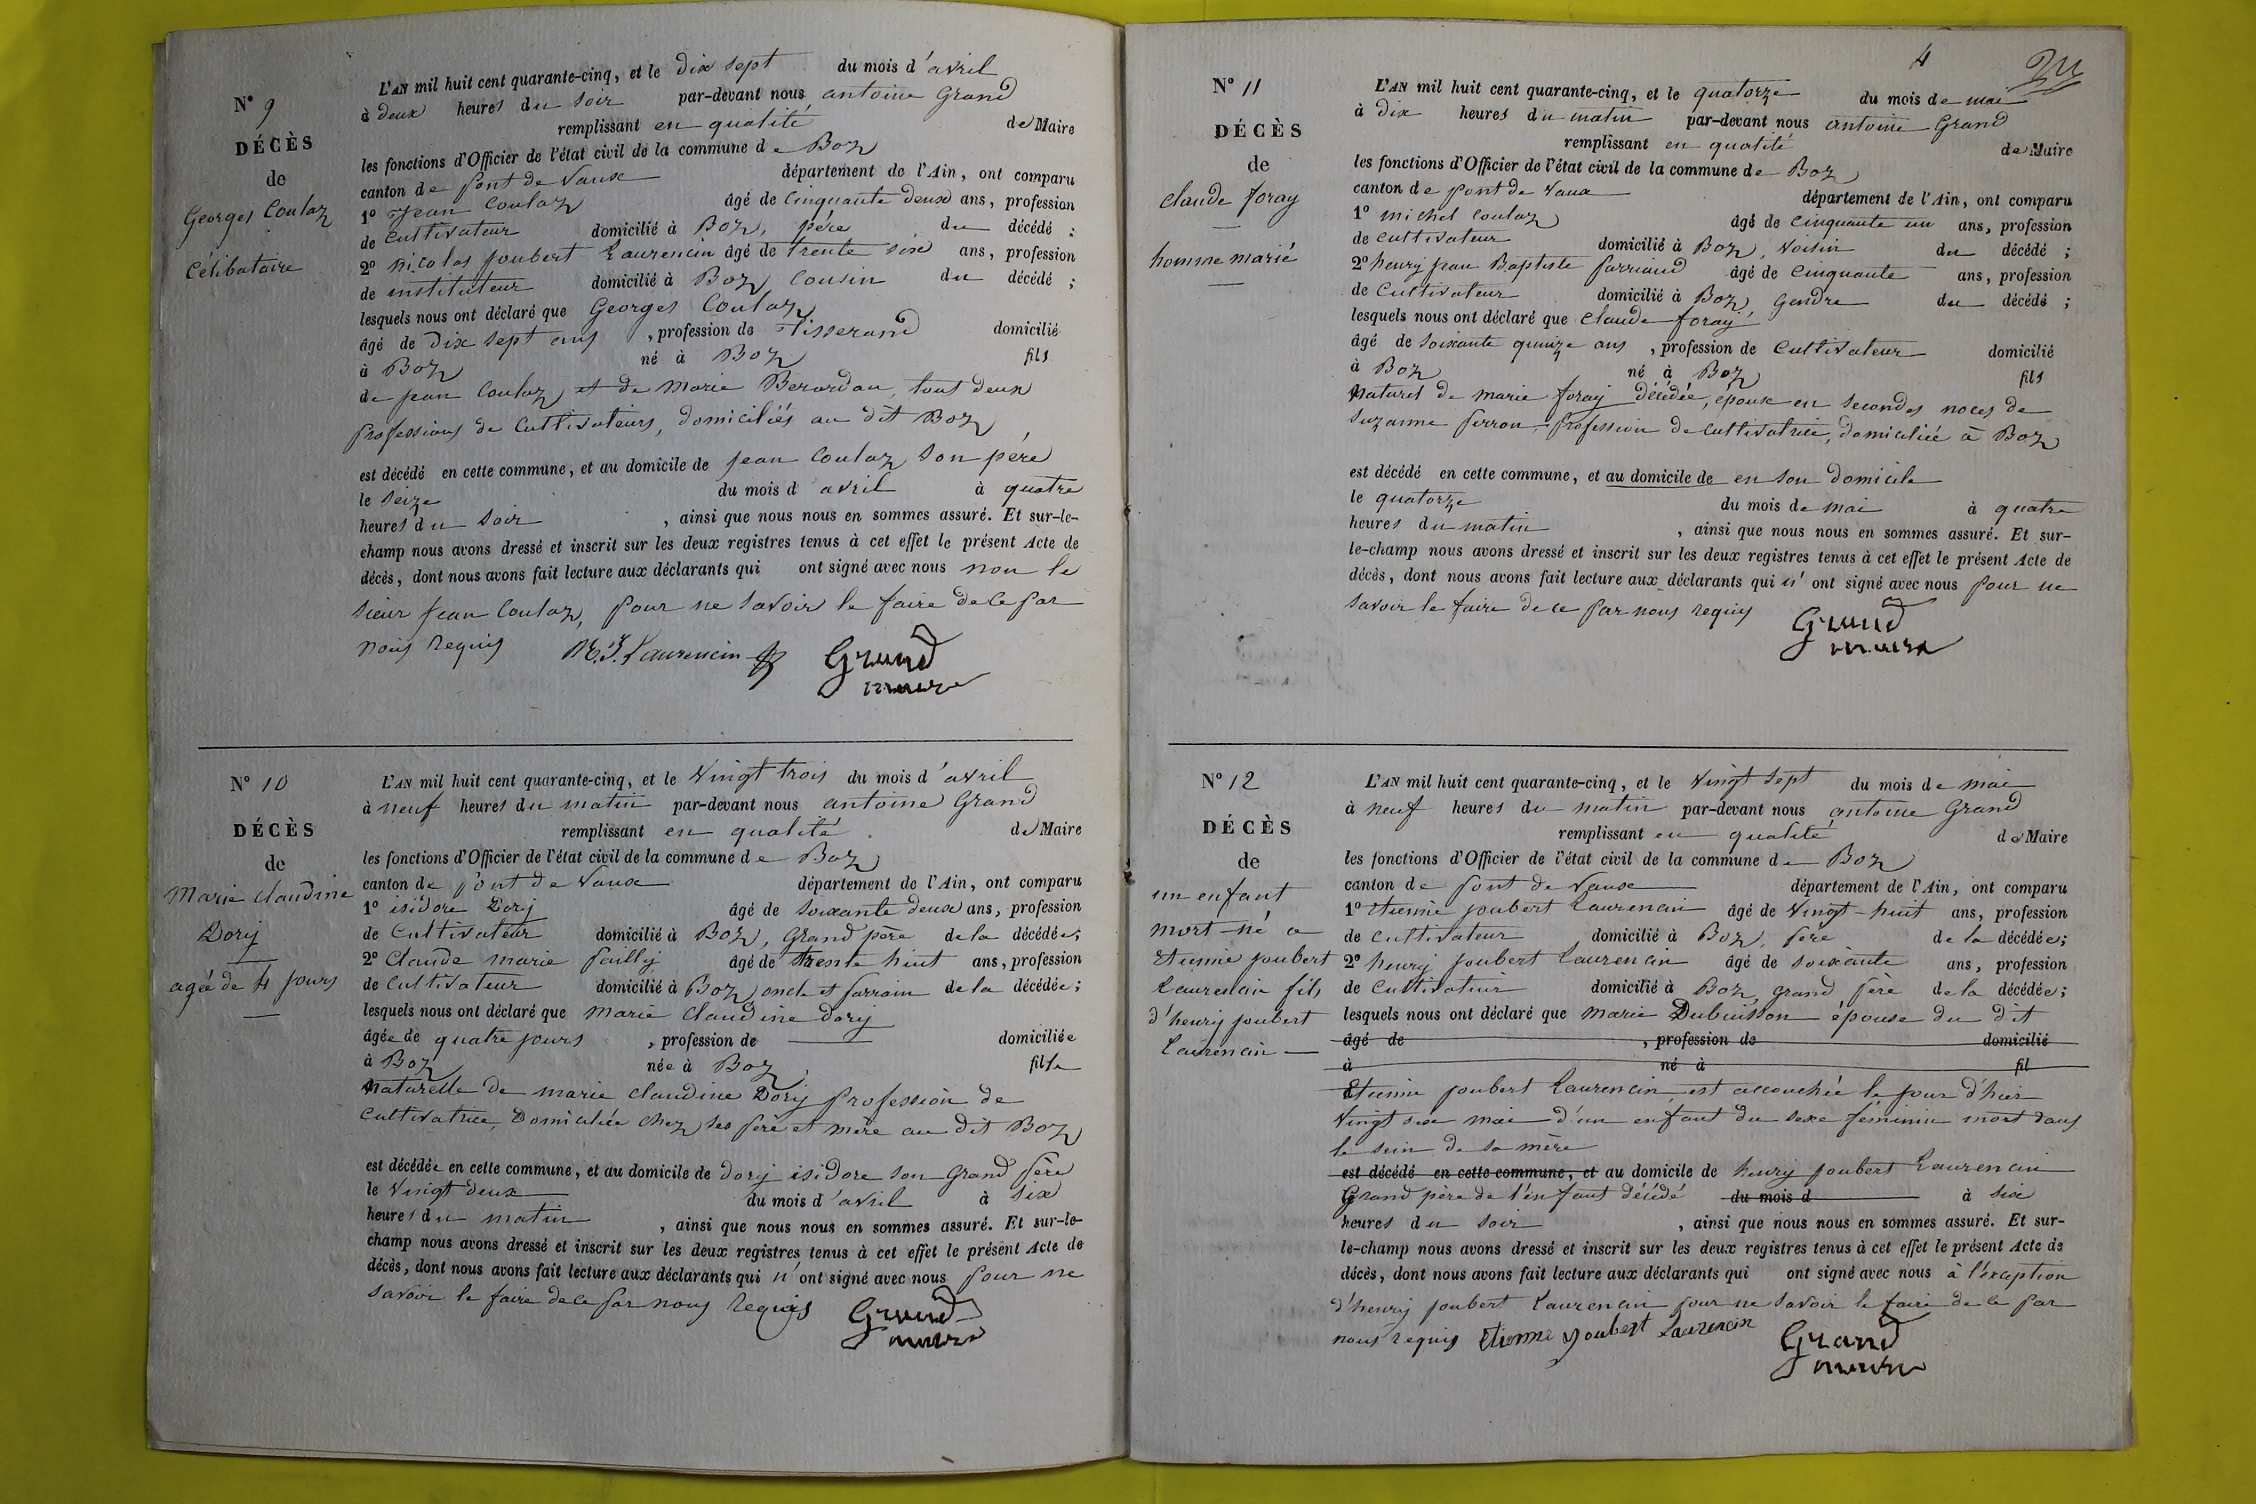 N° 9
DÉCÈS
de
Georges Coulaz
célibataire
L'AN mil huit cent quarante-cinq, et le dix sept du mois d'avril
à deux heures du soir par-devant nous antoine Grand
remplissant en qualité de Maire
les fonctions d'Officier de l'état civil de la commune de Boz
canton de pont de Vaux département de l'Ain, ont comparu
1° Jean Coulaz âgé de Cinquante deux ans, profession
de Cultivateur domicilié à Boz, père du décédé ;
2° nicolas joubert Laurencin âgé de trente six ans, profession
de instituteur domicilié à Boz Cousin du décédé ;
lesquels nous ont déclaré que Georges Coulaz
âgé de dix sept ans , profession de Tisserand domicilié
à Boz né à Boz fils
de jean Coulaz et de Marie Berardan, tout deux
professions de Cultivateurs, domiciliés au dit Boz
est décédé en cette commune, et au domicile de jean Coulaz son père
le seize du mois d avril à quatre
heures du soir , ainsi que nous nous en sommes assuré. Et sur-le-
champ nous avons dressé et inscrit sur les deux registres tenus à cet effet le présent Acte de
décès, dont nous avons fait lecture aux déclarants qui ont signé avec nous non le
sieur jean Coulaz, pour ne savoir le faire de ce par
nous requis N. J. Laurencin Grand
maire
N° 10
DÉCÈS
de
Marie Claudine
Dory
agée de 4 jours
L'AN mil huit cent quarante-cinq, et le Vingt trois du mois d'avril
à neuf heures du matin par-devant nous antoine Grand
remplissant en qualité de Maire
les fonctions d'Officier de l'état civil de la commune de Boz
canton de pont de Vaux département de l'Ain, ont comparu
1° isidore Dory âgé de soixante deux ans, profession
de Cultivateur domicilié à Boz, Grand père de la décédée;
2° Claude marie pailly âgé de trente huit ans, profession
de Cultivateur domicilié à Boz oncle et parrain de la décédée;
lesquels nous ont déclaré que marie Claudine dory
âgée de quatre jours , profession de domiciliée
à Boz née à Boz fille
Naturelle de marie Claudine Dory profession de
Cultivatrice, Domiciliée chez ses père et mère au dit Boz
est décédée en cette commune, et au domicile de dory isidore son Grand père
le Vingt deux du mois d'avril à six
heures du matin , ainsi que nous nous en sommes assuré. Et sur-le-
champ nous avons dressé et inscrit sur les deux registres tenus à cet effet le présent Acte de
décès, dont nous avons fait lecture aux déclarants qui n'ont signé avec nous pour ne
savoir le faire de ce par nous Requis Grand
maire
4
N° 11
DÉCÈS
de
claude foray
homme marié
L'AN mil huit cent quarante-cinq, et le quatorze du mois de mai
à dix heures du matin par-devant nous antoine Grand
remplissant en qualité de Maire
les fonctions d'Officier de l'état civil de la commune de Boz
canton de pont de Vaux département de l'Ain, ont comparu
1° michel Coulaz âgé de Cinquante un ans, profession
de Cultivateur domicilié à Boz, Voisin du décédé ;
2° henry jean Baptiste parriaud âgé de Cinquante ans, profession
de Cultivateur domicilié à Boz, Gendre du décédé ;
lesquels nous ont déclaré que Claude foray
âgé de soixante quinze ans , profession de Cultivateur domicilié
à Boz né à Boz fils
Naturel de marie foray décédée, époux en secondes noces de
suzanne perron, profession de Cultivatrice, domiciliée à Boz
est décédé en cette commune, et au domicile de en son domicile
le quatorze du mois de mai à quatre
heures du matin , ainsi que nous nous en sommes assuré. Et sur-
le-champ nous avons dressé et inscrit sur les deux registres tenus à cet effet le présent Acte de
décès, dont nous avons fait lecture aux déclarants qui n'ont signé avec nous pour ne
savoir le faire de ce par nous requis Grand
maire
N° 12
DÉCÈS
de
un enfant
mort-né a
Etienne joubert
Laurencin fils
d'henry joubert
Laurencin
L'AN mil huit cent quarante-cinq, et le Vingt sept du mois de mai
à neuf heures du matin par-devant nous antoine Grand
remplissant en qualité de Maire
les fonctions d'Officier de l'état civil de la commune de Boz
canton de pont de Vaux département de l'Ain, ont comparu
1° Etienne joubert Laurencin âgé de Vingt-huit ans, profession
de Cultivateur domicilié à Boz, père de la décédée;
2° henry joubert Laurencin âgé de soixante ans, profession
de Cultivateur domicilié à Boz, grand père de la décédée;
lesquels nous ont déclaré que marie Dubuisson épouse du dit
âgé de , profession de domicilié
à né à fil
Etienne joubert Laurencin est accouchée le jour d'hier
Vingt six mai d'un enfant du sexe féminin mort dans
le sein de sa mère
est décédé en cette commune, et au domicile de henry joubert Laurencin
Grand père de l'enfant décédé du mois d à six
heures du soir , ainsi que nous nous en sommes assuré. Et sur-
le-champ nous avons dressé et inscrit sur les deux registres tenus à cet effet le présent Acte de
décès, dont nous avons fait lecture aux déclarants qui ont signé avec nous à l'exception
d'henry joubert Laurencin pour ne savoir le faire de ce par
nous requis Etienne Joubert Laurencin Grand
maire